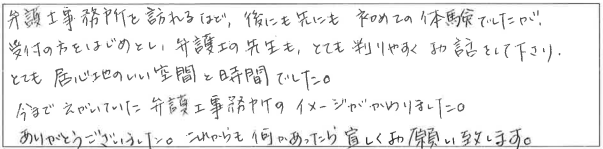 弁護士事務所を訪れるなど、後にも先にも初めての体験でしたが、
受付の方をはじめとし、弁護士の先生も、とても判りやすくお話をして下さり、
とても居心地のいい空間と時間でした。
今までえがいていた弁護士事務所のイメージがかわりました。
ありがとうございました。これからも何かあったら宜しくお願い致します。